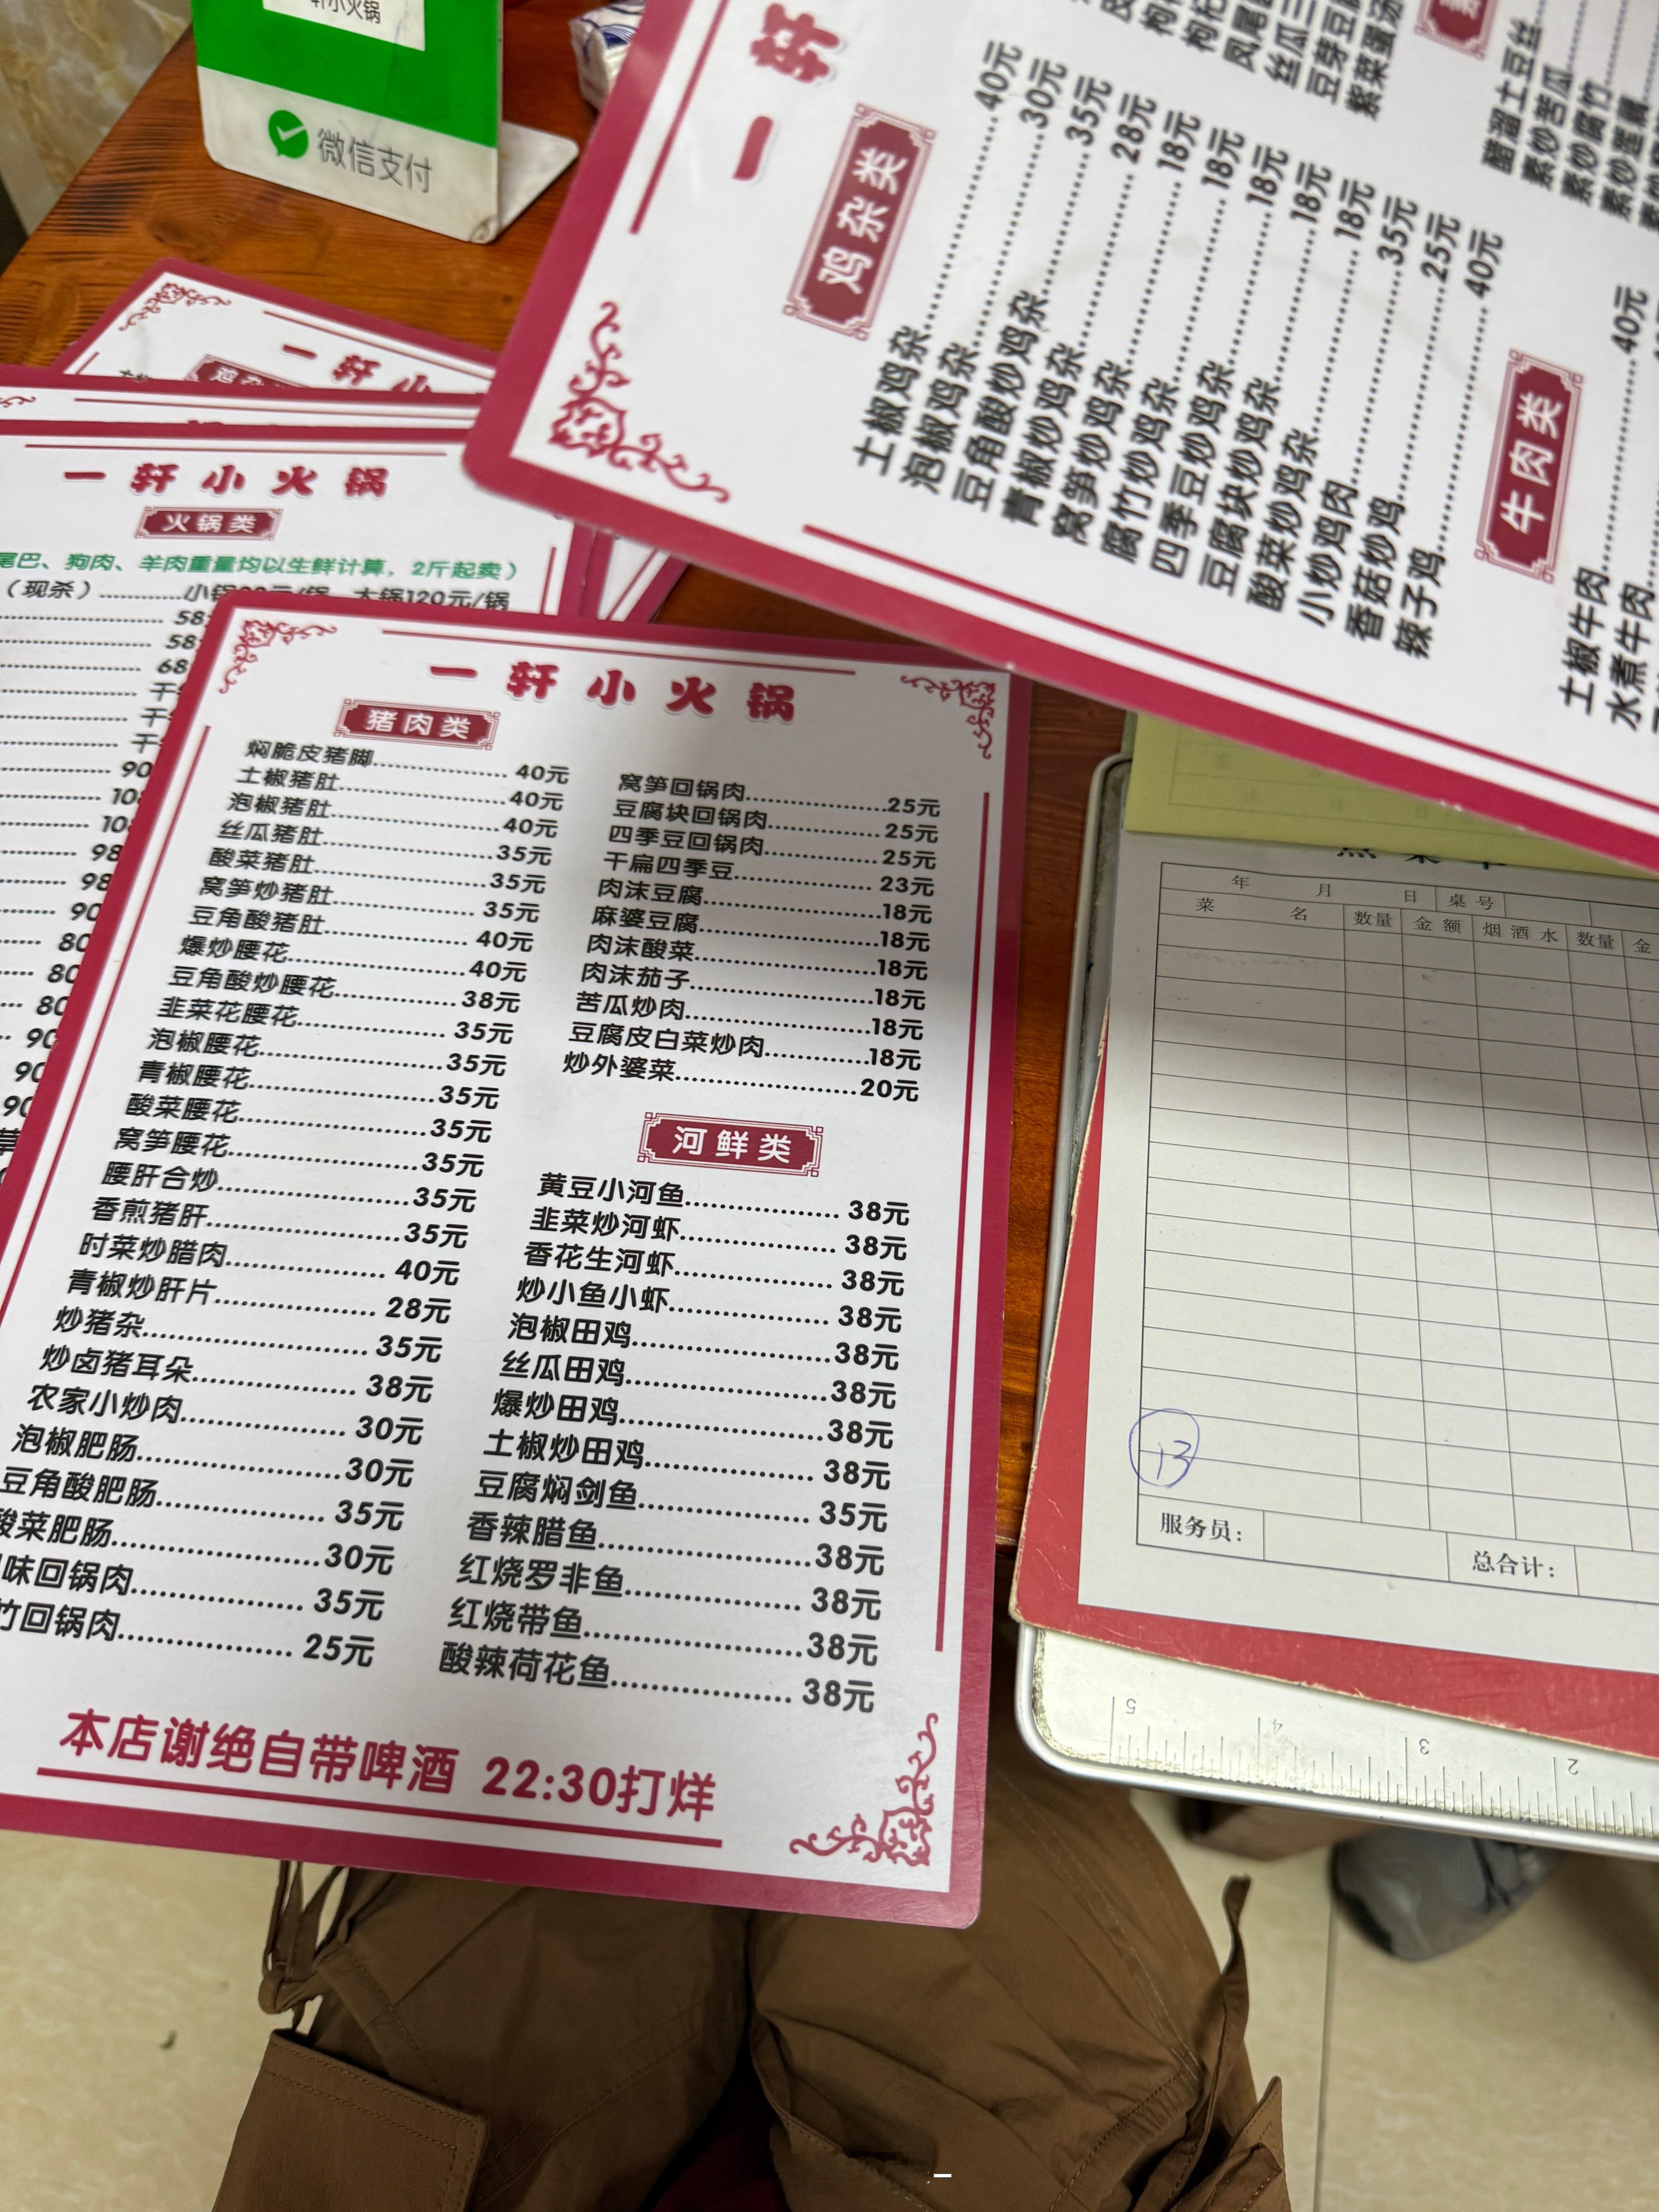 轩小火锅
微信支付
一轩
鸡杂类
土椒鸡杂 40元
泡椒鸡杂 30元
豆角酸炒鸡杂 35元
青椒炒鸡杂 28元
窝笋炒鸡杂 18元
腐竹炒鸡杂 18元
四季豆炒鸡杂 18元
豆腐块炒鸡杂 18元
酸菜炒鸡杂 18元
小炒鸡肉 35元
香菇炒鸡 25元
辣子鸡 40元
丝瓜三
豆芽豆腐
紫菜蛋汤
醋溜土豆丝
素炒苦瓜
素炒腐竹
牛肉类
土椒牛肉 40元
水煮牛肉
一轩小
一轩小火锅
火锅类
尾巴、狗肉、羊肉重量均以生鲜计算，2斤起卖）
（现杀） 小锅 元/锅 大锅120元/锅
58
58
68
干
干
干
90
98
98
90
80
80
80
90
90
90
一轩小火锅
猪肉类
焖脆皮猪脚 40元
土椒猪肚 40元
泡椒猪肚 40元
丝瓜猪肚 35元
酸菜猪肚 35元
窝笋炒猪肚 35元
豆角酸猪肚 40元
爆炒腰花 40元
豆角酸炒腰花 38元
韭菜花腰花 35元
泡椒腰花 35元
青椒腰花 35元
酸菜腰花 35元
窝笋腰花 35元
腰肝合炒 35元
香煎猪肝 35元
时菜炒腊肉 40元
青椒炒肝片 28元
炒猪杂 35元
炒卤猪耳朵 38元
农家小炒肉 30元
泡椒肥肠 30元
豆角酸肥肠 35元
酸菜肥肠 30元
味回锅肉 35元
竹回锅肉 25元
窝笋回锅肉 25元
豆腐块回锅肉 25元
四季豆回锅肉 25元
干扁四季豆 23元
肉沫豆腐 18元
麻婆豆腐 18元
肉沫酸菜 18元
肉沫茄子 18元
苦瓜炒肉 18元
豆腐皮白菜炒肉 18元
炒外婆菜 20元
河鲜类
黄豆小河鱼 38元
韭菜炒河虾 38元
香花生河虾 38元
炒小鱼小虾 38元
泡椒田鸡 38元
丝瓜田鸡 38元
爆炒田鸡 38元
土椒炒田鸡 38元
豆腐焖剑鱼 35元
香辣腊鱼 38元
红烧罗非鱼 38元
红烧带鱼 38元
酸辣荷花鱼 38元
本店谢绝自带啤酒 22:30打烊
年 月 日 桌号
菜名 数量 金额 烟酒水 数量 金
13
服务员：
总合计：
5 4 3 2